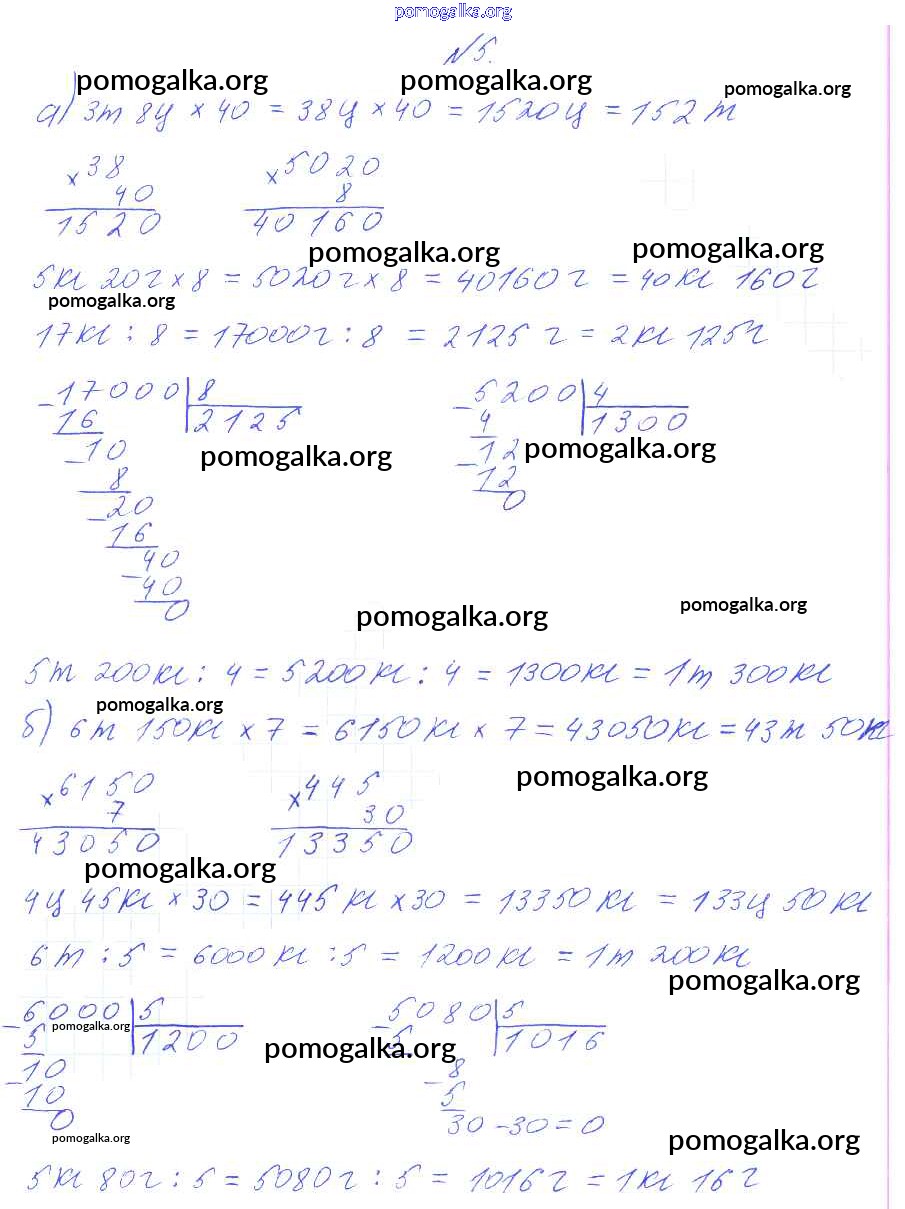 pomogalka.org
№5.
pomogalka.org pomogalka.org pomogalka.org
а) 3т 8ц × 40 = 38ц × 40 = 1520ц = 152т
× 38 × 5020
40 8
1520 40160
pomogalka.org pomogalka.org
5кг 20г × 8 = 5020г × 8 = 40160г = 40кг 160г
pomogalka.org
17кг : 8 = 17000г : 8 = 2125г = 2кг 125г
- 17000 8 - 5200 4
16 2125 4 1300
- 10 - 12
pomogalka.org pomogalka.org
8 12
- 20 0
16
- 40
40
0
pomogalka.org pomogalka.org
5т 200кг : 4 = 5200кг : 4 = 1300кг = 1т 300кг
pomogalka.org
б) 6т 150кг × 7 = 6150кг × 7 = 43050кг = 43т 50кг
pomogalka.org
× 6150 × 445
7 30
43050 13350
pomogalka.org
4ц 45кг × 30 = 445кг × 30 = 13350кг = 133ц 50кг
6т : 5 = 6000кг : 5 = 1200кг = 1т 200кг
pomogalka.org
- 6000 5 - 5080 5
pomogalka.org
5 1200 5 1016
pomogalka.org
- 10 - 8
10 5
0 30 - 30 = 0
pomogalka.org pomogalka.org
5кг 80г : 5 = 5080г : 5 = 1016г = 1кг 16г